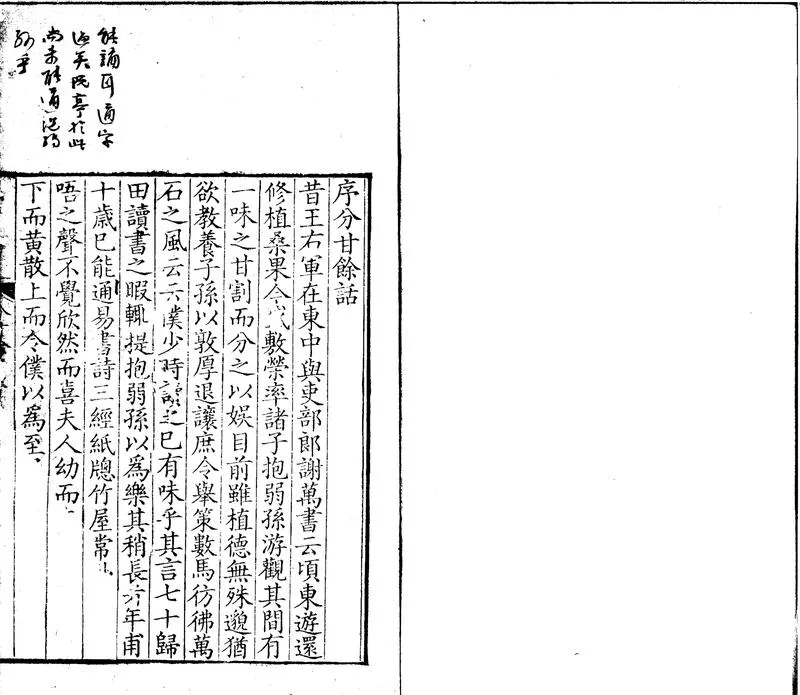 序分甘餘話
昔王右軍在東中與吏部郎謝萬書云頃東遊還
修植桑果今敷榮率諸子抱弱孫游觀其間有
一味之甘割而分之以娛目前雖植德無殊邈猶
欲教養子孫以敦厚退讓庶令舉策數馬彷彿萬
石之風云云僕少時讀之已有味乎其言七十歸
田讀書之暇輒提抱弱孫以爲樂其稍長年甫
十歲已能通易書詩三經紙牕竹屋常
唔之聲不覺欣然而喜夫人幼而
下而黄散上而令僕以爲至
能誦耳通字
亭於此
尚未能道
乎